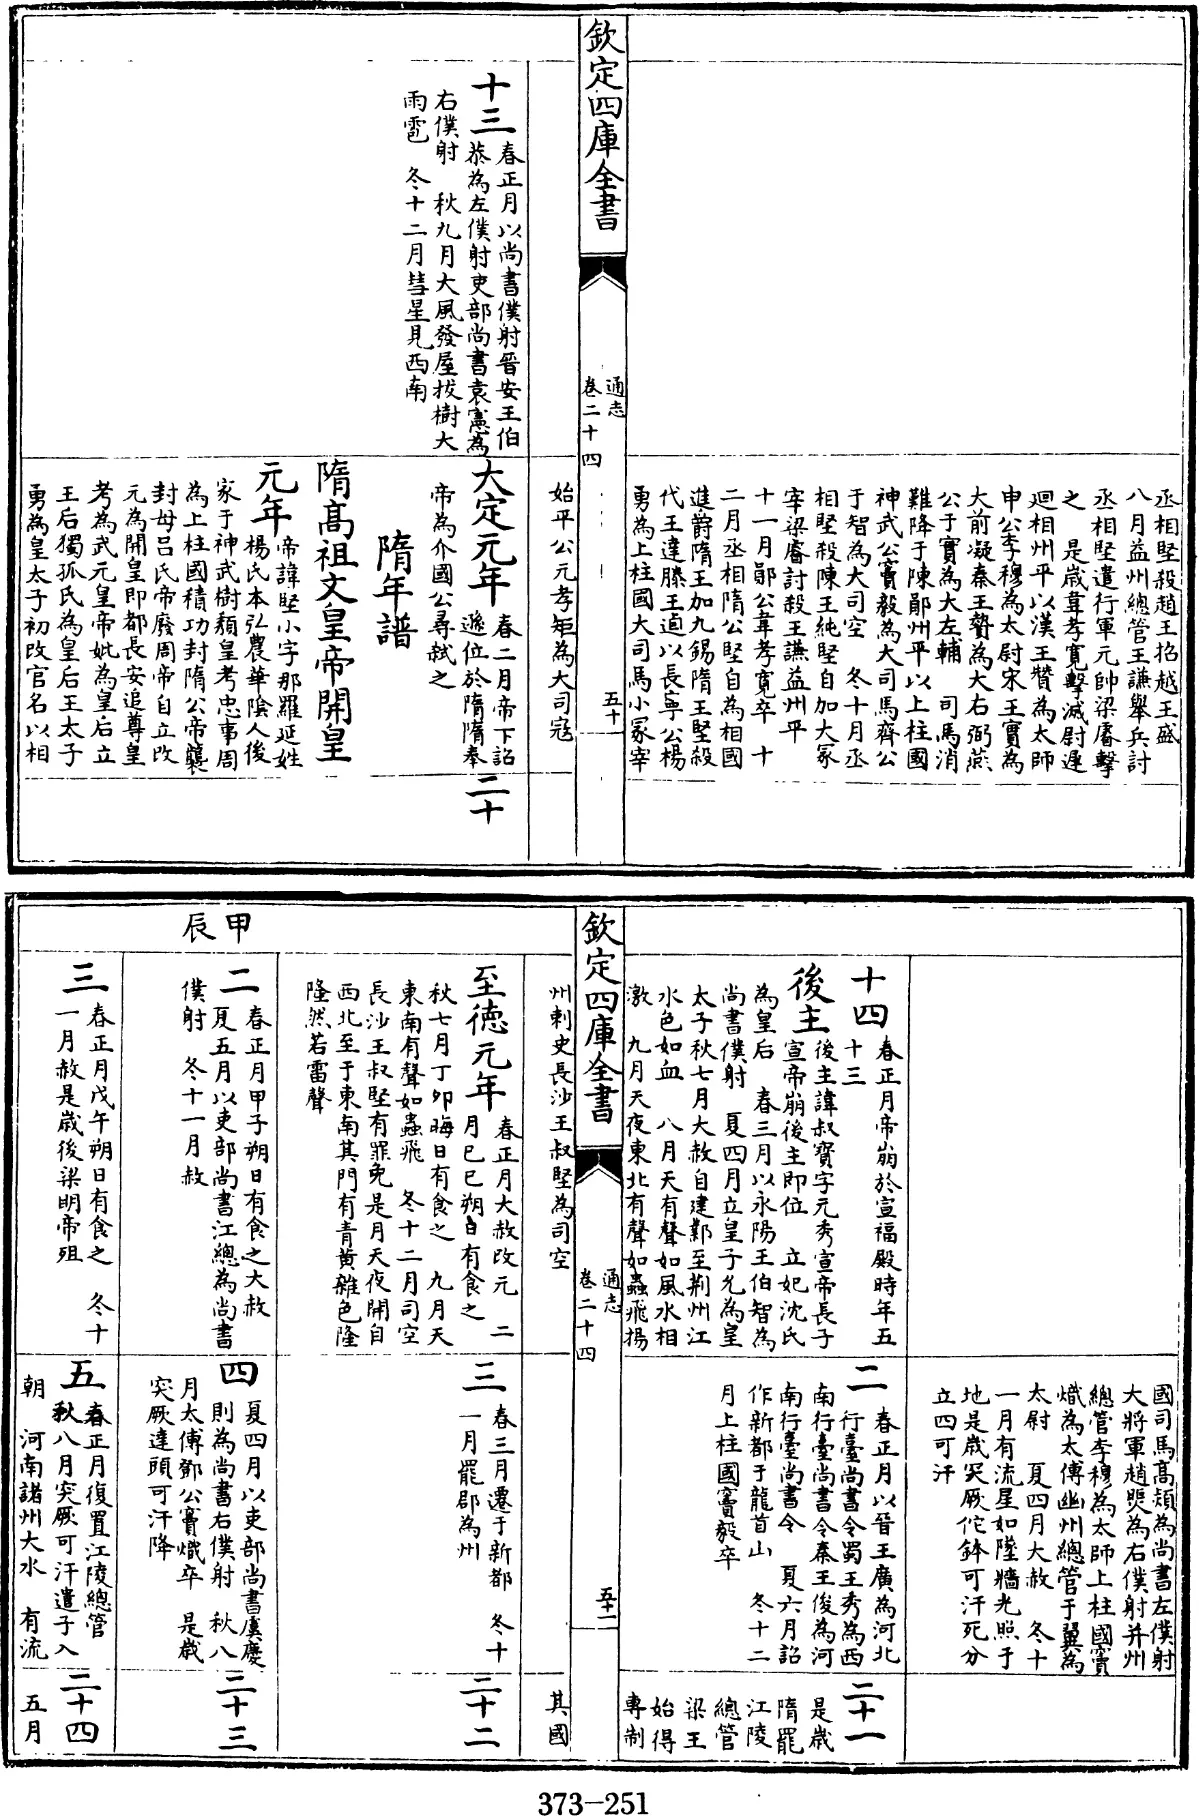 丞相堅殺趙王招越王盛
八月益州總管王謙舉兵討
丞相堅遣行軍元帥梁睿擊
之　是歲韋孝寬擊滅尉遲
迴相州平以漢王贊為太師
申公李穆為太尉宋王實為
大前疑秦王贄為大右弼燕
公于寔為大左輔　司馬消
難降于陳鄖州平以上柱國
神武公竇毅為大司馬齊公
于智為大司空　冬十月丞
相堅殺陳王純堅自加大冢
宰梁睿討殺王謙益州平
十一月鄖公韋孝寬卒　十
二月丞相隋公堅自為相國
進爵隋王加九錫隋王堅殺
代王達滕王逌以長寧公楊
勇為上柱國大司馬小冢宰
欽定四庫全書
通志
卷二十四
五十
始平公元孝矩為大司寇
十三
春正月以尚書僕射晉安王伯
恭為左僕射吏部尚書袁憲為
右僕射　秋九月大風發屋拔樹大
雨雹　冬十二月彗星見西南
大定元年
春二月帝下詔
遜位於隋隋奉
帝為介國公尋弒之
二十
隋年譜
隋髙祖文皇帝開皇
元年
帝諱堅小字那羅延姓
楊氏本弘農華陰人後
家于神武樹頹皇考忠事周
為上柱國積功封隋公帝襲
封母吕氏帝廢周帝自立改
元為開皇即都長安追尊皇
考為武元皇帝妣為皇后立
王后獨孤氏為皇后王太子
勇為皇太子初改官名以相
國司馬髙熲為尚書左僕射
大將軍趙煚為右僕射并州
總管李穆為太師上柱國竇
熾為太傅幽州總管于翼為
太尉　夏四月大赦　冬十
一月有流星如墜牆光照于
地是歲突厥佗鉢可汗死分
立四可汗
十四
春正月帝崩於宣福殿時年五
十三
後主
後主諱叔寳字元秀宣帝長子
宣帝崩後主即位　立妃沈氏
為皇后　春三月以永陽王伯智為
尚書僕射　夏四月立皇子允為皇
太子秋七月大赦自建鄴至荆州江
水色如血　八月天有聲如風水相
激　九月天夜東北有聲如蟲飛揚
二
春正月以晉王廣為河北
行臺尚書令蜀王秀為西
南行臺尚書令秦王俊為河
南行臺尚書令　夏六月詔
作新都于龍首山　冬十二
月上柱國竇毅卒
二十一
是歲
隋罷
江陵
總管
梁王
始得
專制
欽定四庫全書
通志
卷二十四
五十一
州刺史長沙王叔堅為司空
其國
至德元年
春正月大赦改元　二
月己巳朔日有食之
秋七月丁卯晦日有食之　九月天
東南有聲如蟲飛　冬十二月司空
長沙王叔堅有罪免是月天夜開自
西北至于東南其門有青黃雜色隆
隆然若雷聲
三
春三月遷于新都　冬十
一月罷郡為州
二十二
甲辰
二
春正月甲子朔日有食之大赦
夏五月以吏部尚書江總為尚書
僕射　冬十一月赦
四
夏四月以吏部尚書虞慶
則為尚書右僕射　秋八
月太傅鄧公竇熾卒　是歲
突厥達頭可汗降
二十三
三
春正月戊午朔日有食之　冬十
一月赦是歲後梁明帝殂
五
春正月復置江陵總管
秋八月突厥可汗遣子入
朝　河南諸州大水　有流
二十四
五月
373-251